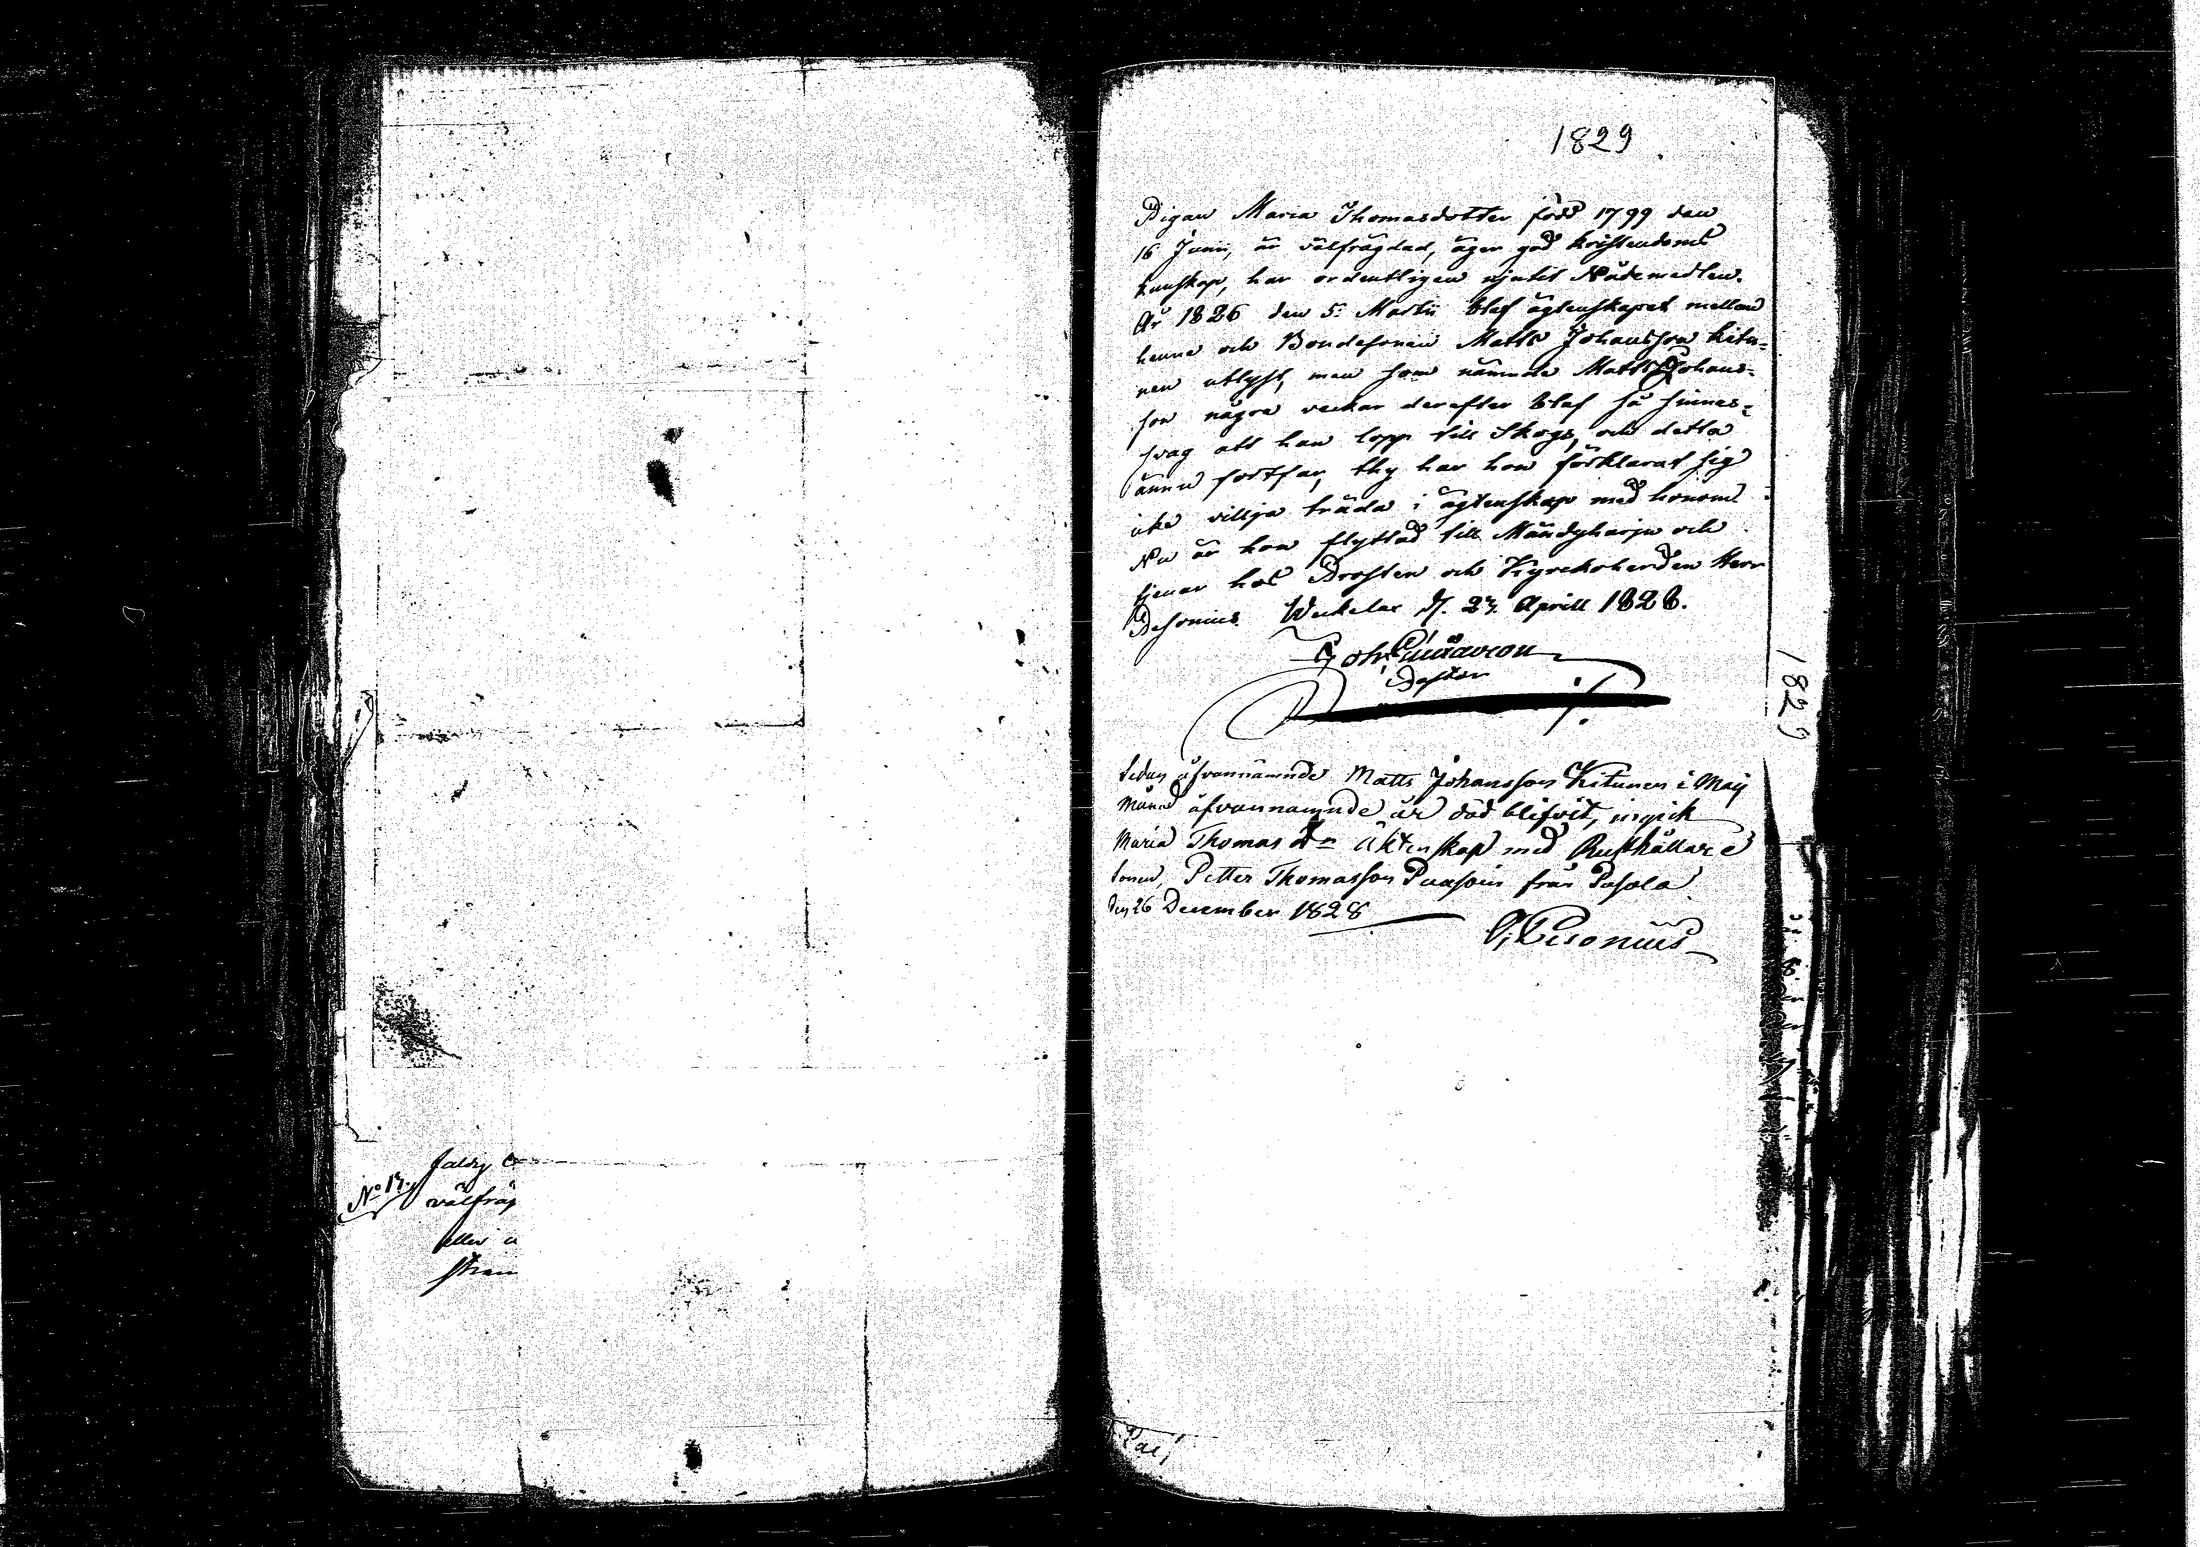 1829
Pigan Maria Thomasdotter född 1799 den
16 Junii, är välfrägdad, äger god kristendoms
kunskap, har ordentligen njutit Nådemedlen.
År 1826 den 5: Martii blef ägtenskapet mellan
henne och Bondesonen Matts Johansson Kitu-
nen utlyst, men som nämnde Matts Johans-
son några veckor derefter blef så sinnes-
svag att han lopp till Skogs, och detta
ännu fortfar, thy har hon förklarat sig
icke villja träda i ägtenskap med honom
Nu är hon flyttad till Mändyharju och
tjenar hos Prosten och Kyrckoherden Herr
Pesonius. Weckelax d. 27. Aprill 1828.
Joh.
Pastor
1829
Sedan ofvannämnde Matts Johansson Kitunen i Maij
Månad ofvannamnde år död blifvit, ingick
Maria Thomas dr äktenskap med Rusthållare
sonen, Petter Thomasson Paasoin från Pasola
den 26 December 1828
Pesonius
No 17.
välfräg
eller